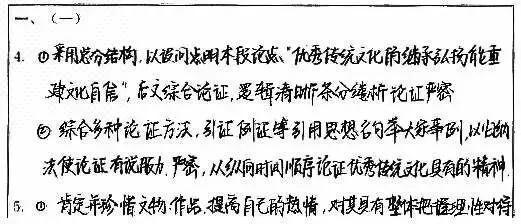 一、(一)
4. ① 采用总分结构,以设问点明本段论点"优秀传统文化的继承弘扬能重
建文化自信",后文综合论证,逻辑清晰条分缕析论证严密
② 综合多种论证方法,引证例证等引用思想名句举大家事例,以归纳
法使论证有说服力,严密,从纵向时间顺序论证优秀传统文化具有的精神.
5. ① 肯定并珍惜文物作品,提高自己的热情,对其具有整体把握理性对待